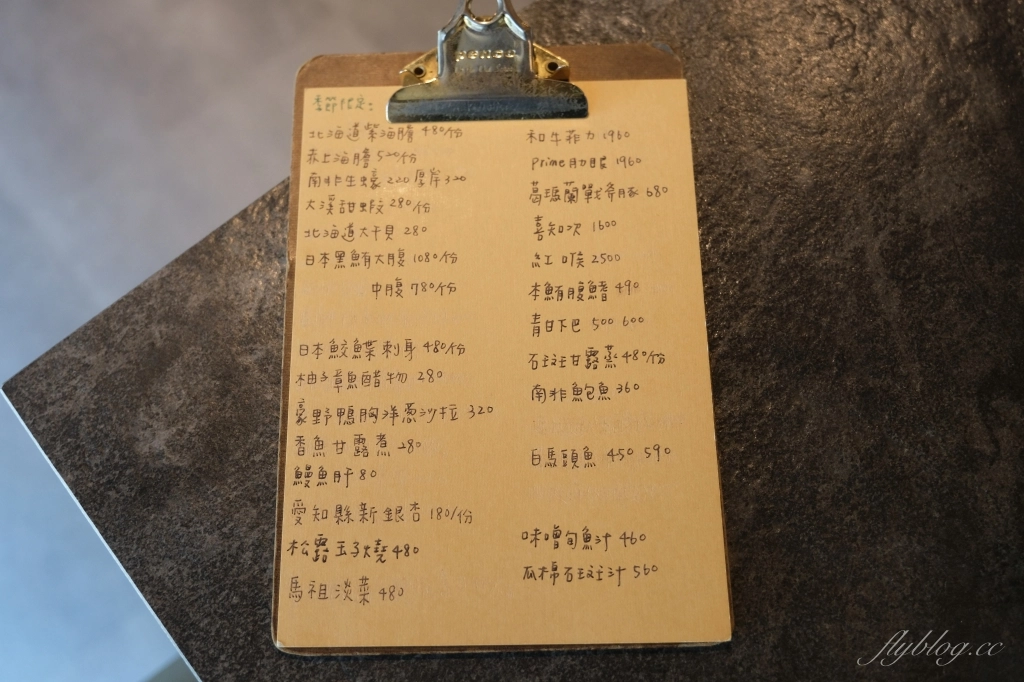 季節限定:
北海道紫海膽 480/份
赤上海膽 520/份
南非生蠔 220 厚岸 320
大溪甜蝦 280/份
北海道大干貝 280
日本黑鮪大腹 1080/份
中腹 780/份
日本鮫鰈刺身 480/份
柚子章魚醋物 280
豪野鴨胸洋蔥沙拉 320
香魚甘露煮 280
鰻魚肝 80
愛知縣新銀杏 180/份
松露玉子燒 480
馬祖淡菜 480
和牛菲力 1960
Prime肋眼 1960
葛瑪蘭戰斧豚 680
喜知次 1600
紅喉 2500
本鮪腹鰭 490
青甘下巴 500 600
石斑甘露蒸 480/份
南非鮑魚 360
白馬頭魚 450 590
味噌旬魚汁 460
瓜棉石斑汁 560
flyblog.cc